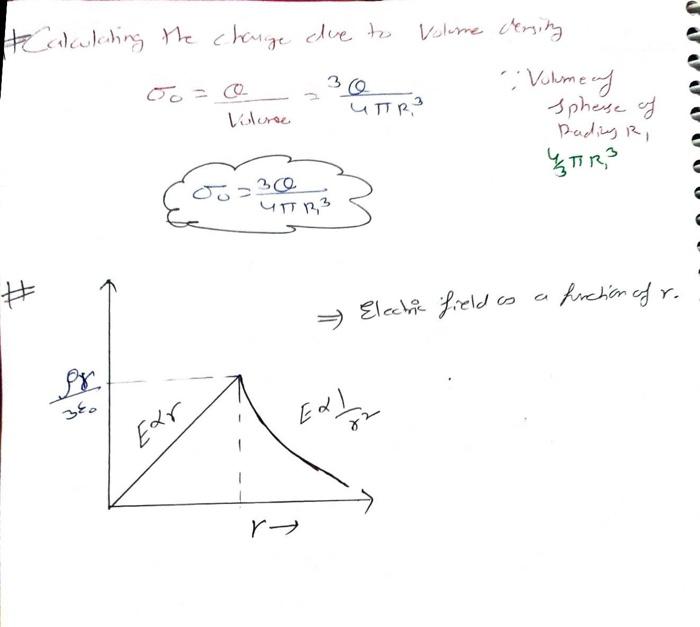 # Calculating the charge due to Volume density
σ₀ = Q / Volume = 3Q / 4πR₁³
∵ Volume of
sphere of
Radius R₁
4/3 πR₁³
σ₀ = 3Q / 4πR₁³
#
⇒ Electric field as a function of r.
ρr / 3ε₀
E∝r
E∝1/r²
r→